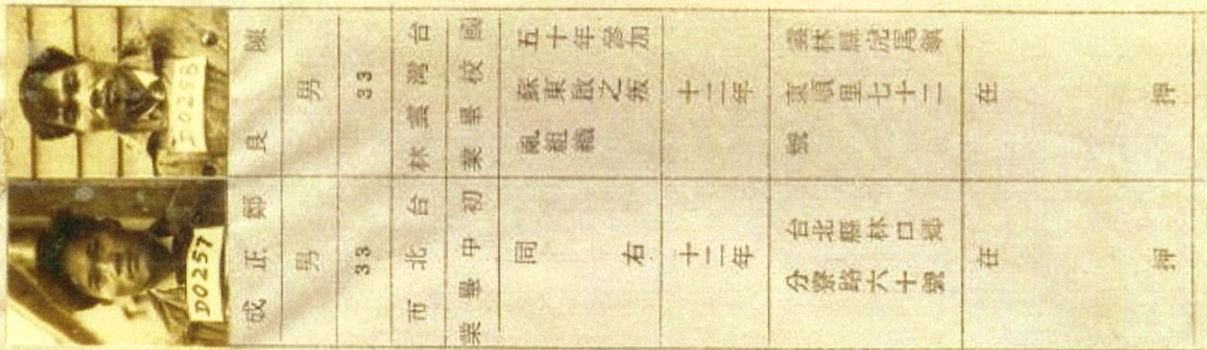 D0258
陳良
男
33
台灣雲林
國校畢業
五十年參加
蘇東啟之叛
亂組織
十二年
雲林縣虎尾鎮
東順里七十二
號
在押
D0257
鄭正成
男
33
台北市
初中畢業
同右
十二年
台北縣林口鄉
分寮路六十號
在押